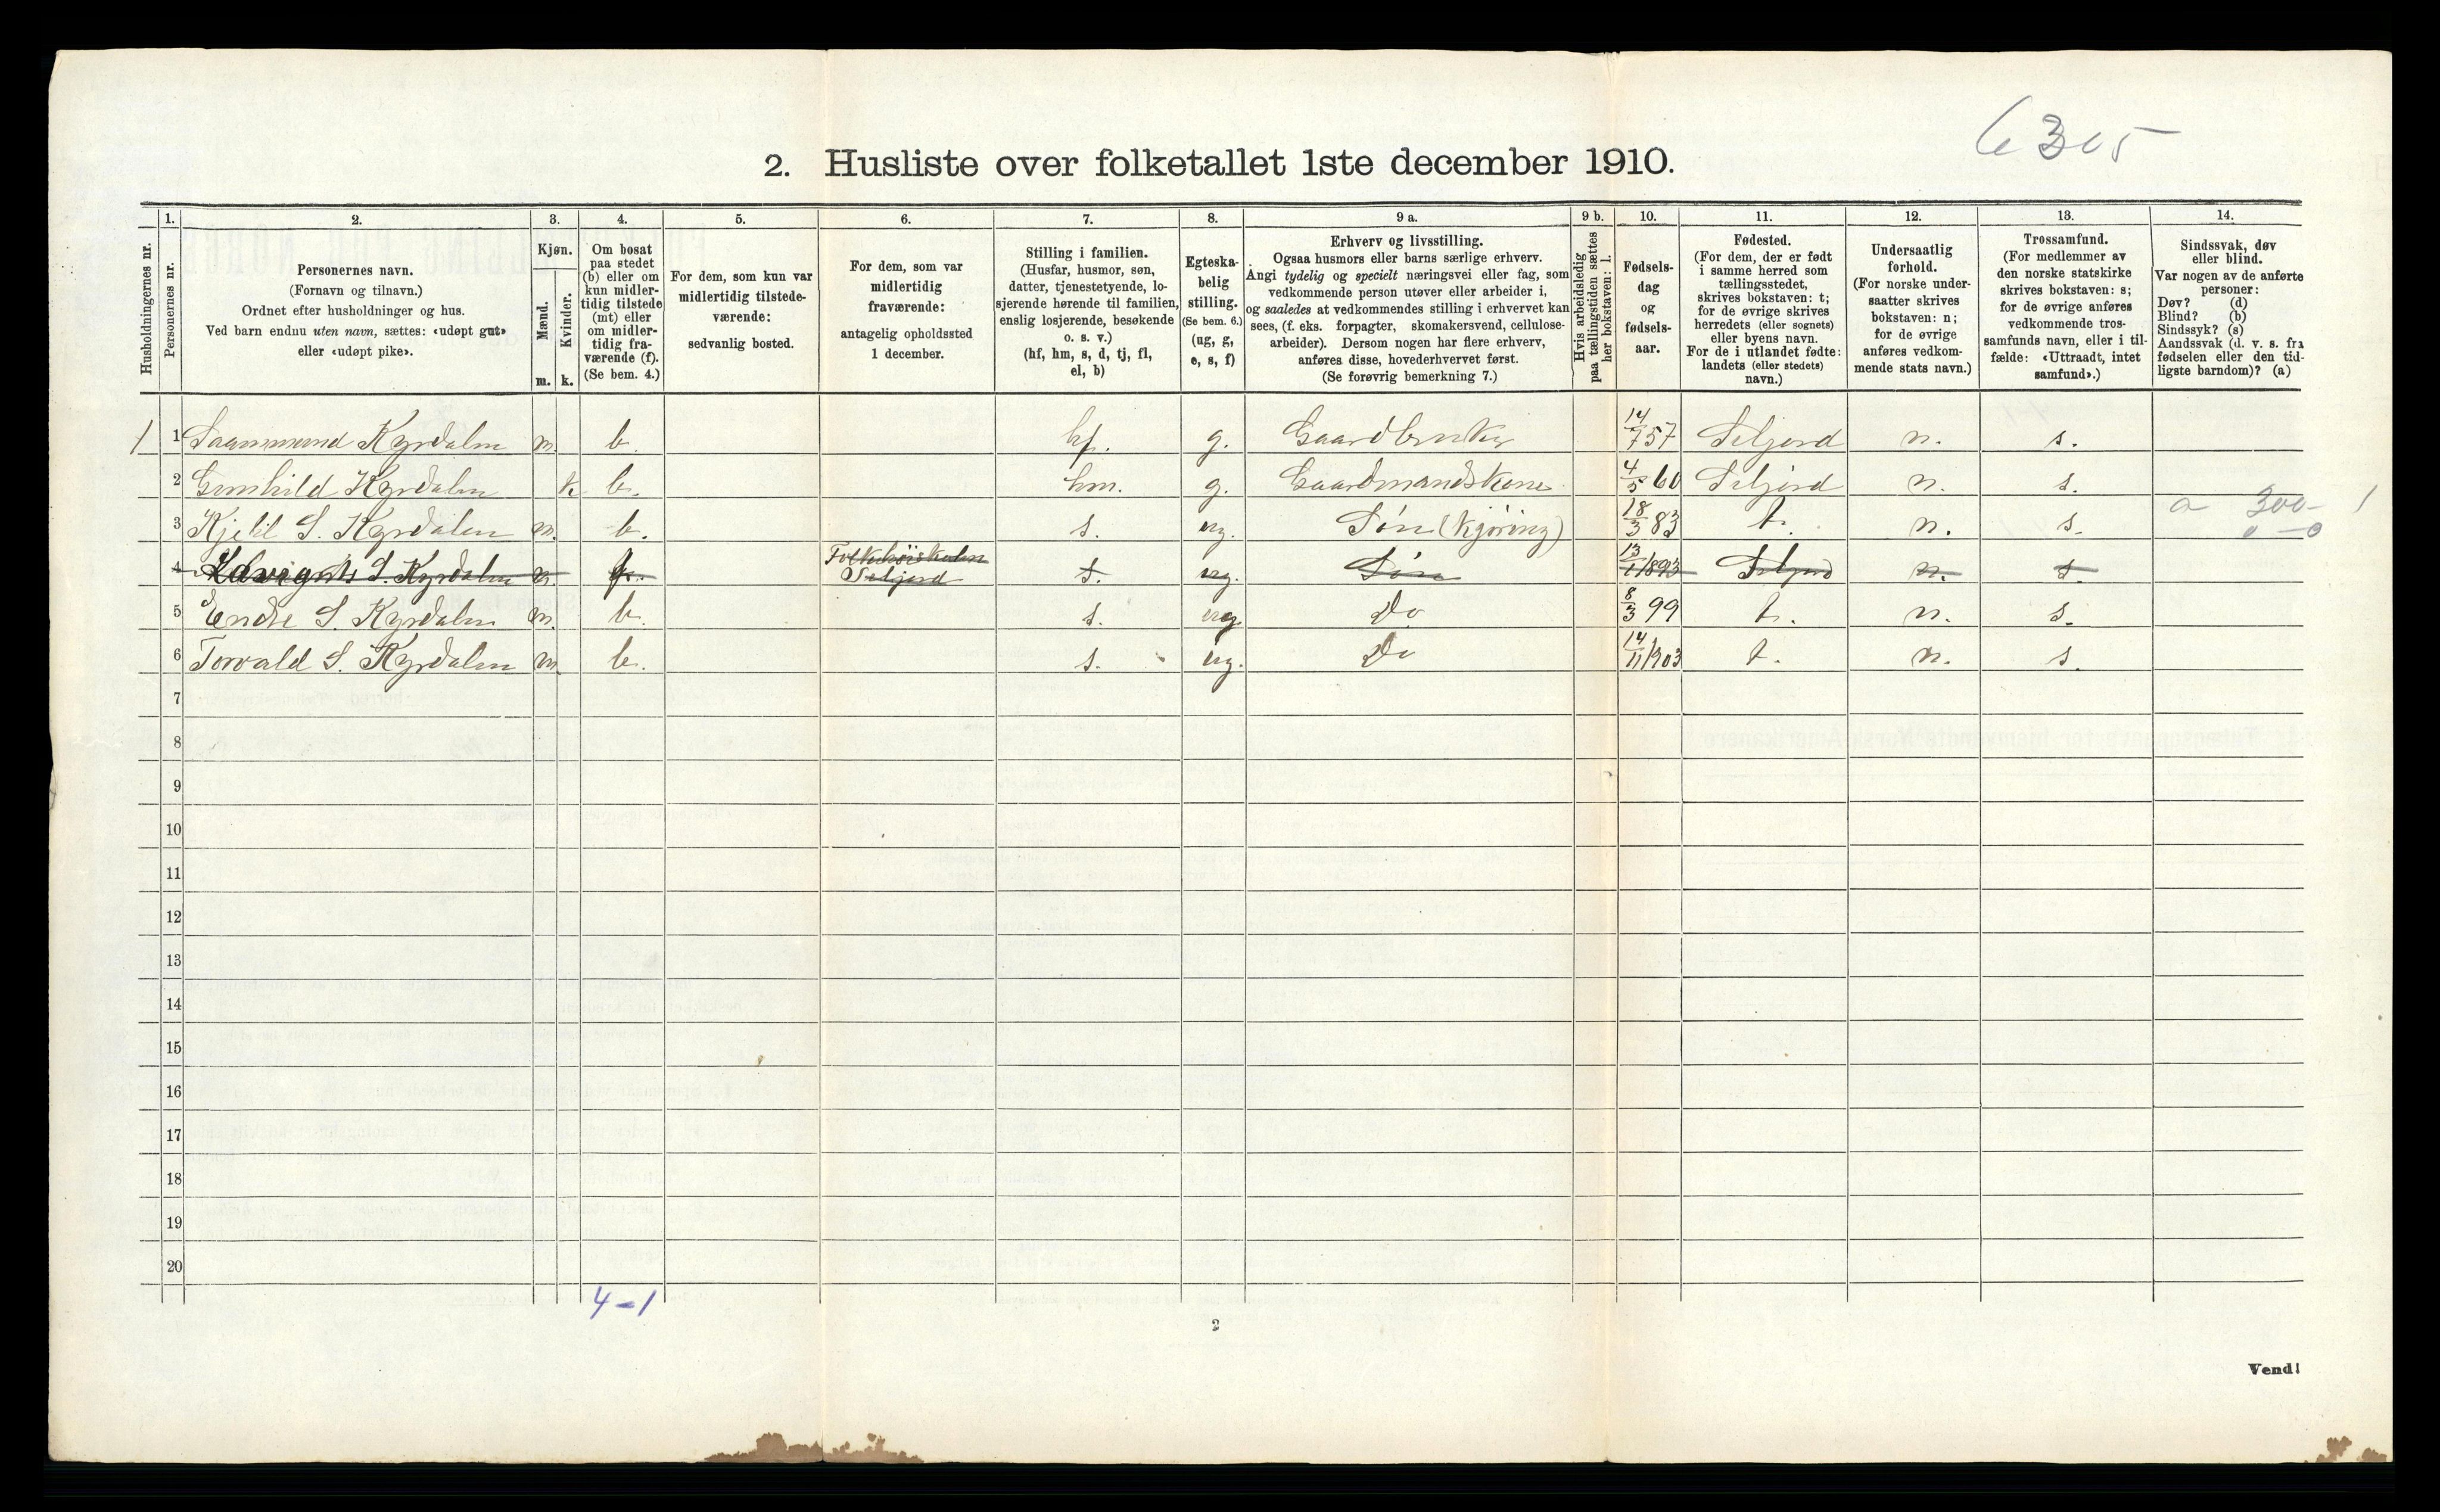 6305
2. Husliste over folketallet 1ste december 1910.
Husholdningernes nr.
1.
Personernes nr.
2.
Personernes navn.
(Fornavn og tilnavn.)
Ordnet efter husholdninger og hus.
Ved barn endnu uten navn, sættes: «udøpt gut»
eller «udøpt pike».
3.
Kjøn.
Mænd.
Kvinder.
m. k.
4.
Om bosat
paa stedet
(b) eller om
kun midler-
tidig tilstede
(mt) eller
om midler-
tidig fra-
værende (f).
(Se bem. 4.)
5.
For dem, som kun var
midlertidig tilstede-
værende:
sedvanlig bosted.
6.
For dem, som var
midlertidig
fraværende:
antagelig opholdssted
1 december.
7.
Stilling i familien.
(Husfar, husmor, søn,
datter, tjenestetyende, lo-
sjerende hørende til familien,
enslig losjerende, besøkende
o. s. v.)
(hf, hm, s, d, tj, fl,
el, b)
8.
Egteska-
belig
stilling.
(Se bem. 6.)
(ug, g,
e, s, f)
9 a.
Erhverv og livsstilling.
Ogsaa husmors eller barns særlige erhverv.
Angi tydelig og specielt næringsvei eller fag, som
vedkommende person utøver eller arbeider i,
og saaledes at vedkommendes stilling i erhvervet kan
sees, (f. eks. forpagter, skomakersvend, cellulose-
arbeider). Dersom nogen har flere erhverv,
anføres disse, hovederhvervet først.
(Se forøvrig bemerkning 7.)
9 b.
Hvis arbeidsledig
paa tællingstiden sættes
her bokstaven: l.
10.
Fødsels-
dag
og
fødsels-
aar.
11.
Fødested.
(For dem, der er født
i samme herred som
tællingsstedet,
skrives bokstaven: t;
for de øvrige skrives
herredets (eller sognets)
eller byens navn.
For de i utlandet fødte:
landets (eller stedets)
navn.)
12.
Undersaatlig
forhold.
(For norske under-
saatter skrives
bokstaven: n;
for de øvrige
anføres vedkom-
mende stats navn.)
13.
Trossamfund.
(For medlemmer av
den norske statskirke
skrives bokstaven: s;
for de øvrige anføres
vedkommende tros-
samfunds navn, eller i til-
fælde: «Uttraadt, intet
samfund».)
14.
Sindssvak, døv
eller blind.
Var nogen av de anførte
personer:
Døv? (d)
Blind? (b)
Sindssyk? (s)
Aandssvak (d. v. s. fra
fødselen eller den tid-
ligste barndom)? (a)
1 1 Saammund Kyrdalen m. b. hf. g. Gaardbruker 14/7 57 Seljord n. s.
2 Gunhild Kyrdalen k b. hm. g. Gaardmandskone 4/5 60 Seljord n. s.
3 Kjetil S. Kyrdalen m. b. s. ug. Søn (kjøring) 18/3 83 t. n. s. a 300- 1
0-0
4 S. Kyrdalen m. f. Folkehøiskolen Seljord s. ug. Søn 13/11 893 Seljord n. s.
5 Endre S. Kyrdalen m. b. s. ug. Do 8/3 99 t. n. s.
6 Torvald S. Kyrdalen m. b. s. ug. Do 14/11 1903 t. n. s.
7
8
9
10
11
12
13
14
15
16
17
18
19
20
4-1
2
Vend!